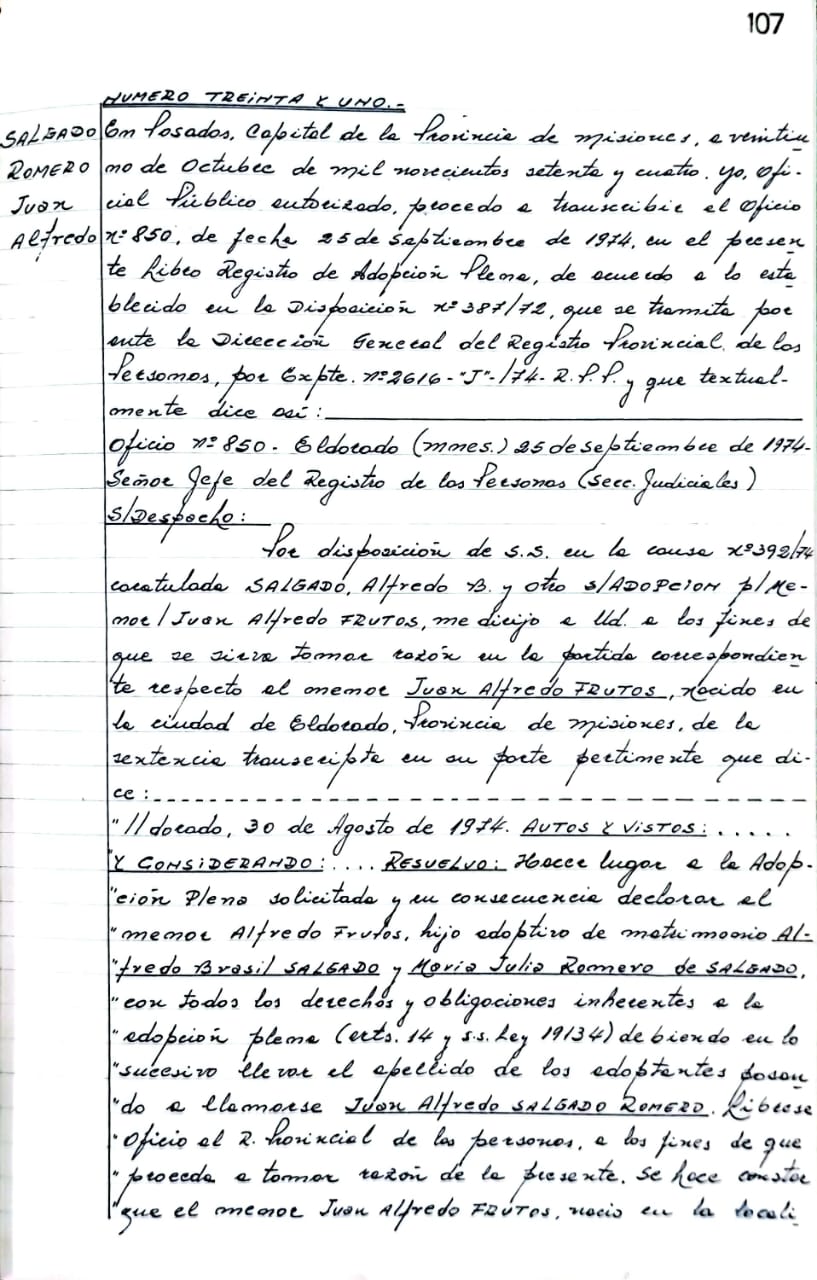 107
NUMERO TREINTA Y UNO.-
SALGADO
ROMERO
Juan
Alfredo
Em Posadas, Capital de la Provincia de misiones, a veintiu
no de Octubre de mil novecientos setenta y cuatro. yo, ofi-
cial Público autorizado, procedo a transcribir el Oficio
nº 850, de fecha 25 de Septiembre de 1974, en el presen
te Libro Registro de Adopción Plena, de acuerdo a lo esta
blecido en la Disposición nº 387/72, que se tramita por
ante la Dirección General del Registro Provincial de las
Personas, por Expte. nº 2616-"J"-/74- R.P.P. y que textual-
mente dice así:
Oficio nº 850- Eldorado (mnes.) 25 de septiembre de 1974-
Señor Jefe del Registro de las Personas (Secc. Judiciales)
S/Despacho:
Por disposición de S.S. en la causa nº 392/74
caratulada SALGADO, Alfredo B. y otro s/ADOPCION p/Me-
nor/Juan Alfredo FRUTOS, me dirijo a Ud. a los fines de
que se sirva tomar razón en la partida correspondien
te respecto al menor Juan Alfredo FRUTOS, nacido en
la ciudad de Eldorado, Provincia de misiones, de la
sentencia transcripta en su parte pertinente que di-
ce:
"//dorado, 30 de Agosto de 1974. AUTOS Y VISTOS: .....
"Y CONSIDERANDO: .... RESUELVO: Hacer lugar a la Adop-
"ción Plena solicitada y en consecuencia declarar al
"menor Alfredo Frutos, hijo adoptivo de matrimonio Al-
"fredo Brasil SALGADO y María Julia Romero de SALGADO,
"con todos los derechos y obligaciones inherentes a la
"adopción plena (arts. 14 y s.s. Ley 19134) debiendo en lo
"sucesivo llevar el apellido de los adoptantes pasan
"do a llamarse Juan Alfredo SALGADO ROMERO. Líbrese
"Oficio al R. Provincial de las personas, a los fines de que
"proceda a tomar razón de la presente. Se hace constar
"que el menor Juan Alfredo FRUTOS, nacio en la locali